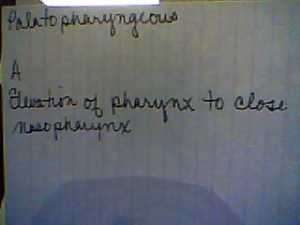 Palatopharyngeous
A
Elevation of pharynx to close
nasopharynx